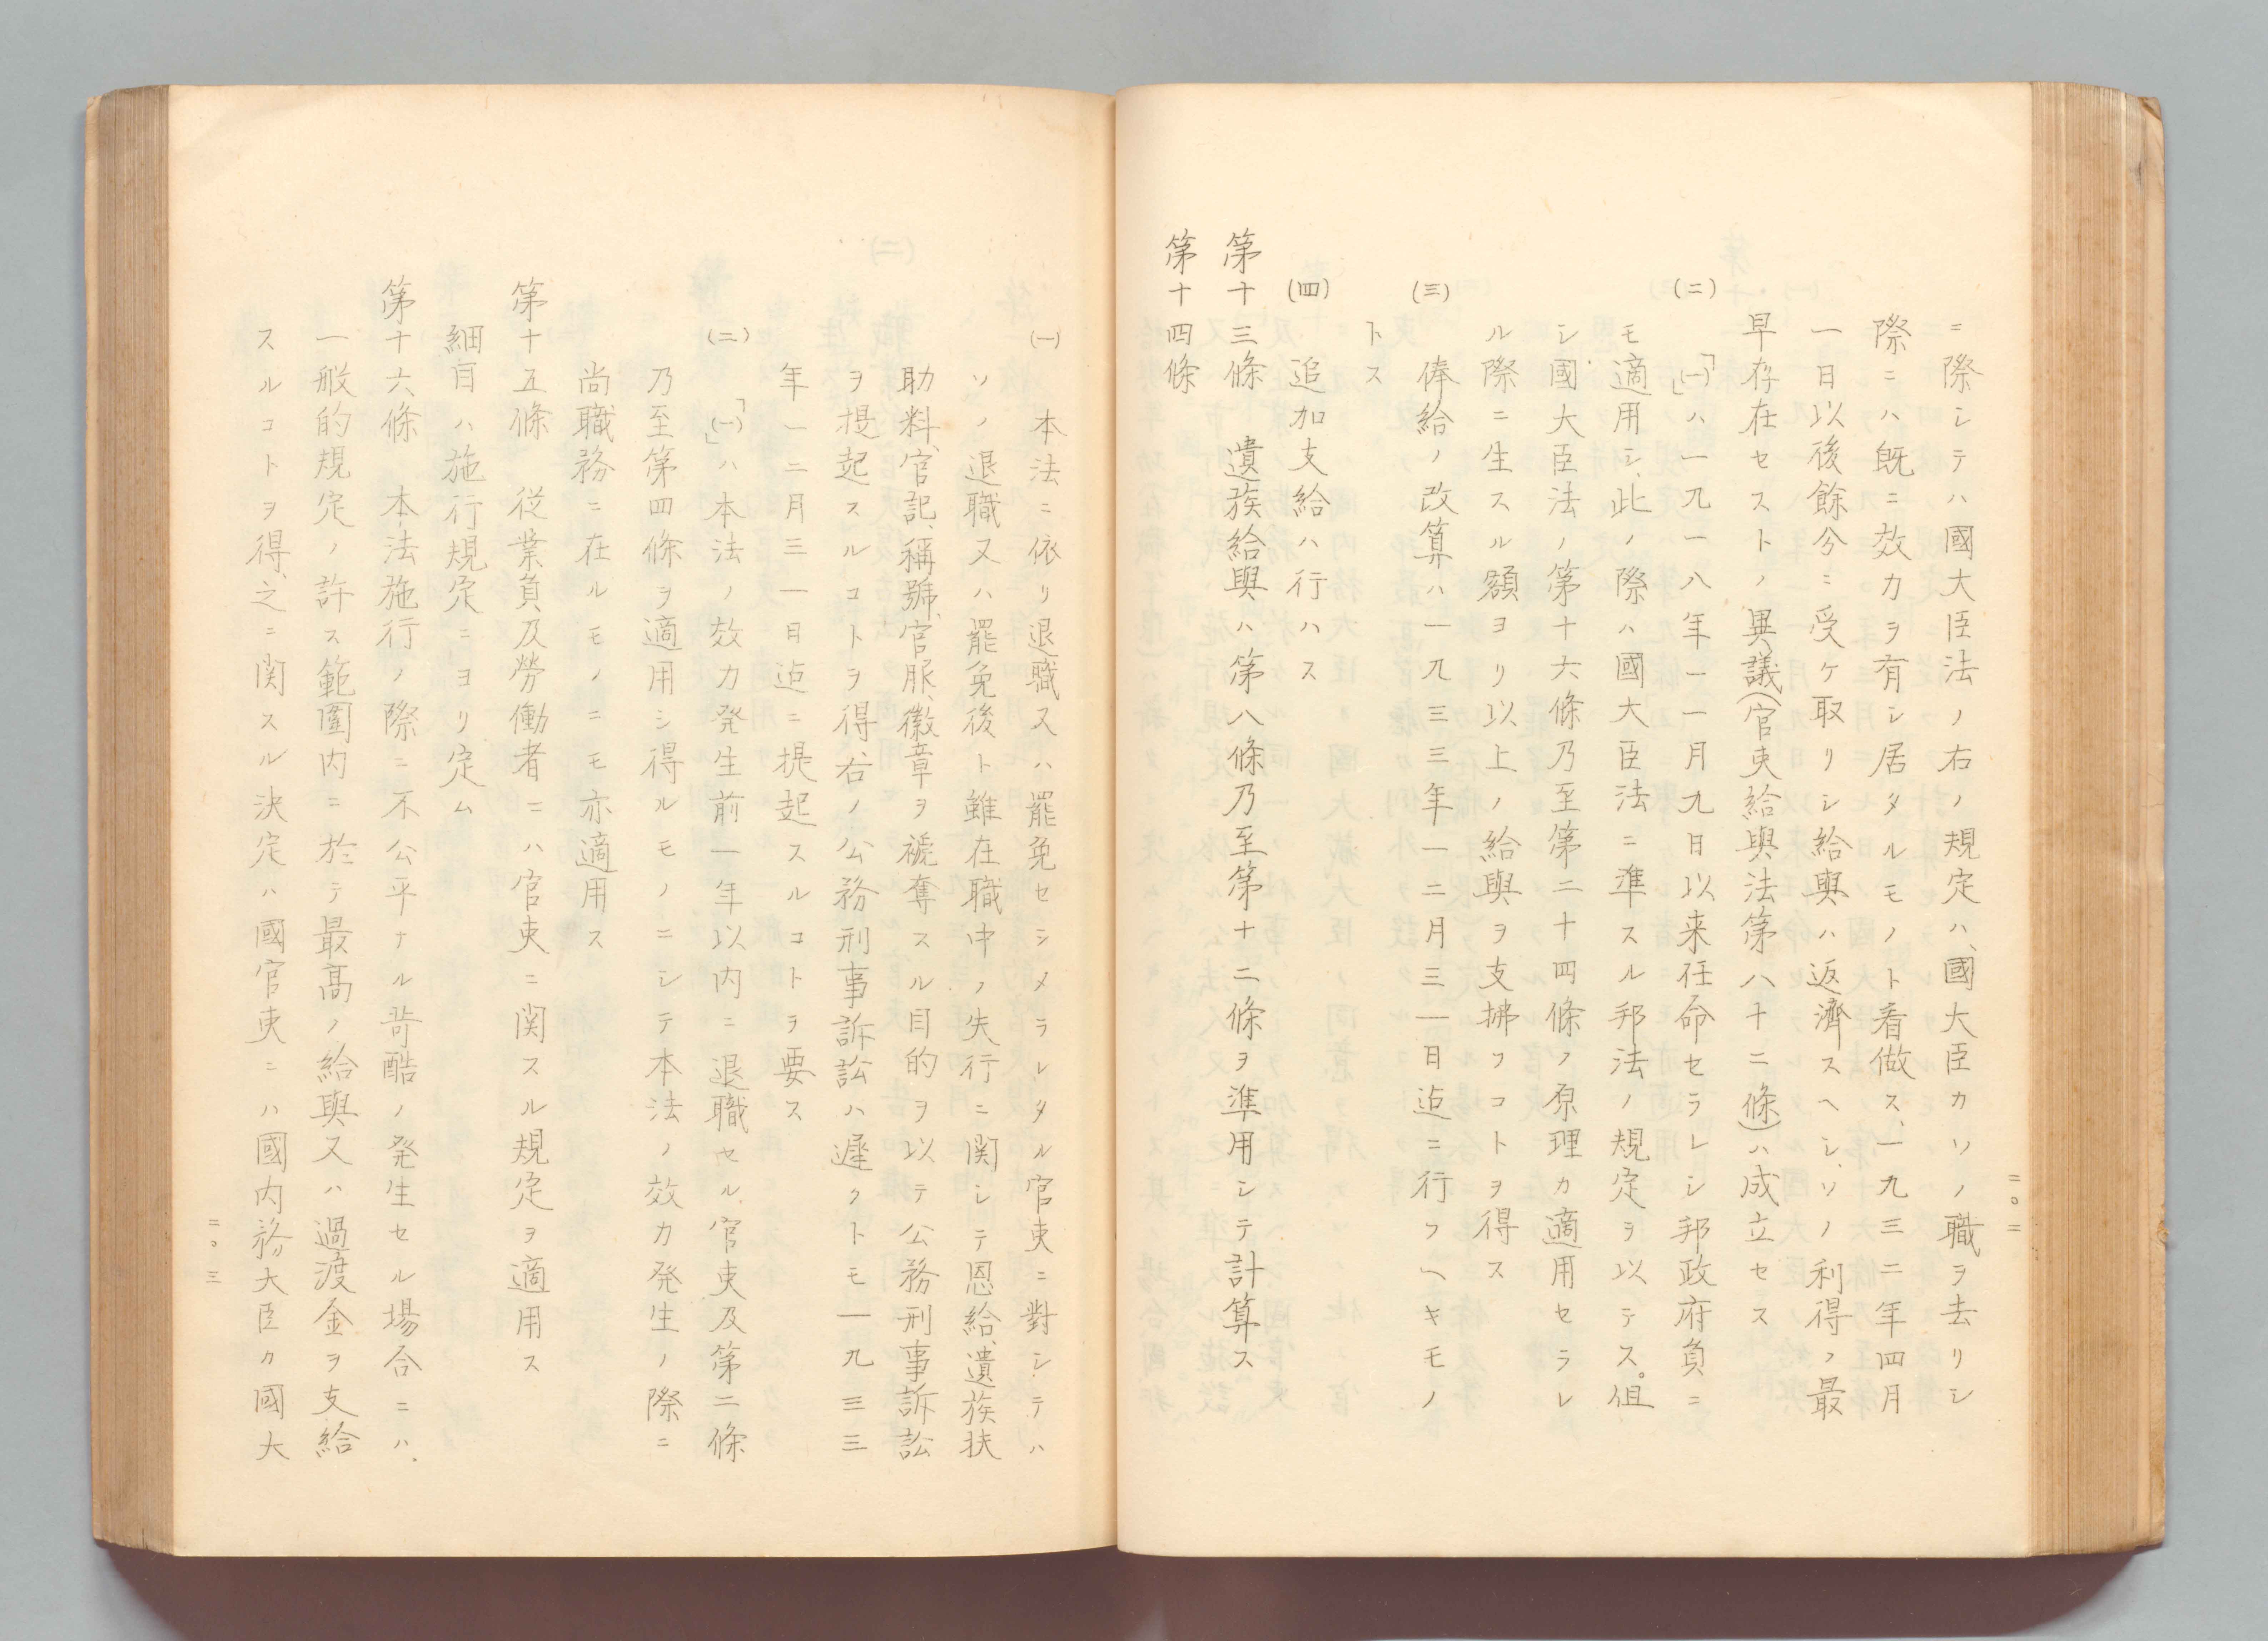 二〇二
ニ際シテハ國大臣法ノ右ノ規定ハ、國大臣カソノ職ヲ去リシ
際ニハ既ニ效力ヲ有シ居タルモノト看做ス、一九三二年四月
一日以後餘分ニ受ケ取リシ給與ハ返濟スヘシ、ソノ利得ノ最
早存在セストノ異議(官吏給與法第八十二條)ハ成立セス
(二)「(一)」ハ一九一八年一一月九日以来任命セラレシ邦政府負ニ
モ適用シ、此ノ際ハ國大臣法ニ準スル邦法ノ規定ヲ以テス。但
シ國大臣法ノ第十六條乃至第二十四條ノ原理カ適用セラレ
ル際ニ生スル額ヨリ以上ノ給與ヲ支拂フコトヲ得ス
(三)俸給ノ改算ハ一九三三年一二月三一日迄ニ行フヘキモノ
トス
(四)追加支給ハ行ハス
第十三條 遺族給與ハ第八條乃至第十二條ヲ準用シテ計算ス
第十四條
(一)本法ニ依リ退職又ハ罷免セシメラレタル官吏ニ對シテハ
ソノ退職又ハ罷免後ト雖在職中ノ失行ニ関シテ恩給、遺族扶
助料、官記、稱號、官服、徽章ヲ褫奪スル目的ヲ以テ公務刑事訴訟
ヲ提起スルコトヲ得、右ノ公務刑事訴訟ハ遲クトモ一九三三
年一二月三一日迄ニ提起スルコトヲ要ス
(二)「(一)」ハ本法ノ效力発生前一年以内ニ退職セル官吏及第二條
乃至第四條ヲ適用シ得ルモノニシテ本法ノ效力発生ノ際ニ
尚職務ニ在ルモノニモ亦適用ス
第十五條 従業負及勞働者ニハ官吏ニ関スル規定ヲ適用ス
細目ハ施行規定ニヨリ定ム
第十六條 本法施行ノ際ニ不公平ナル苛酷ノ発生セル場合ニハ、
一般的規定ノ許ス範圍内ニ於テ最高ノ給與又ハ過渡金ヲ支給
スルコトヲ得、之ニ関スル決定ハ國官吏ニハ國内務大臣カ國大
二〇三